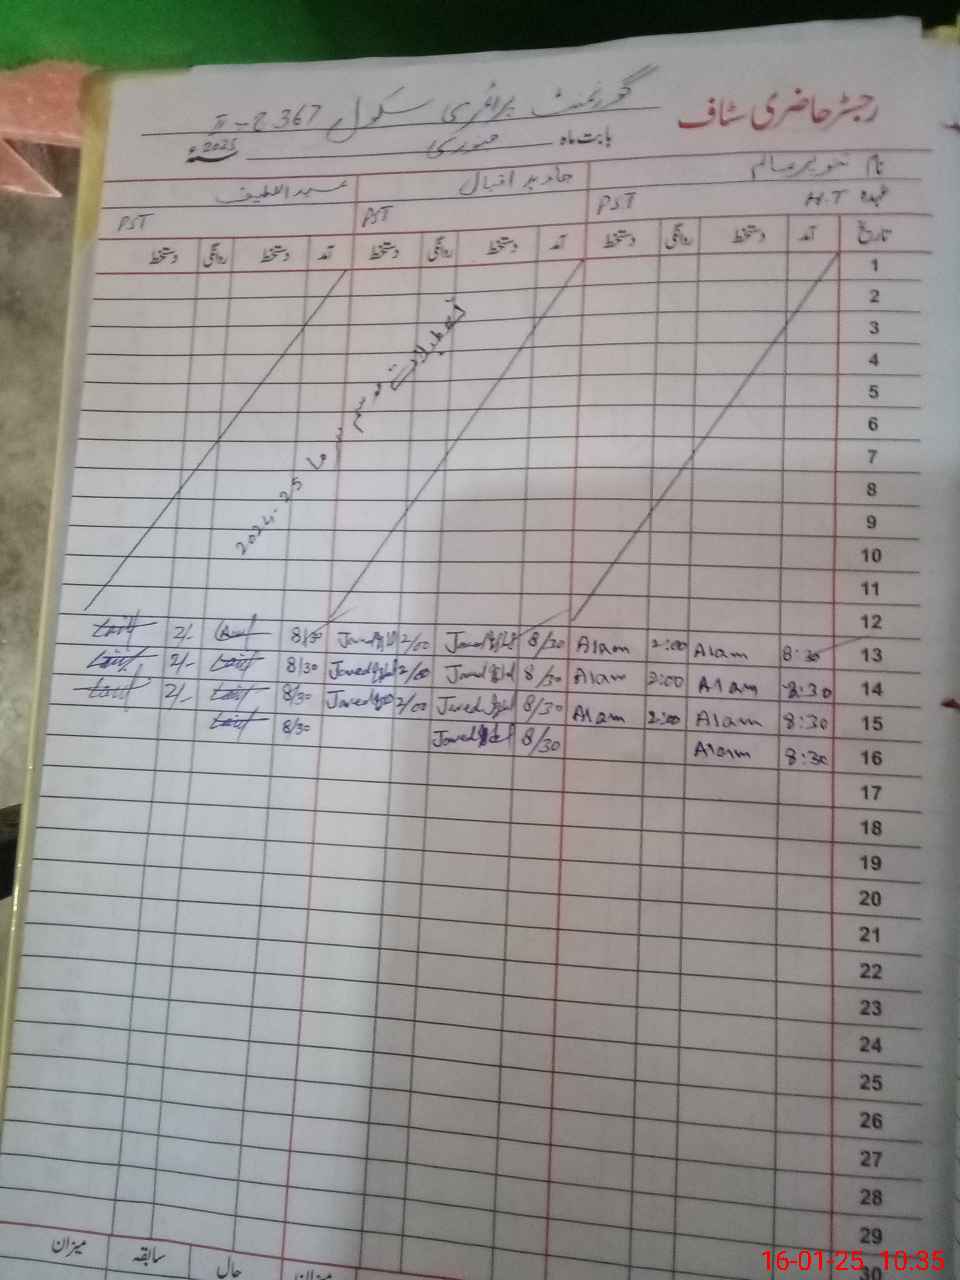 رجسٹر حاضری سٹاف
گورنمنٹ پرائمری سکول 367 ج-II
بابت ماہ جنوری 2025ء
نام تنویر عالم جاوید اقبال عبداللطیف
عہدہ H.T PST PST PST
تاریخ آمد دستخط روانگی دستخط آمد دستخط روانگی دستخط آمد دستخط روانگی دستخط
1
2
3
4
5
6
7
8
9
10
11
12
تعطیلات موسم سرما 2024-25
13 8:30 Alam 2:00 Alam 8/30 Javed Iqbal 2/00 Javed Iqbal 8/30 Latif 2/- Latif
14 8:30 Alam 2:00 Alam 8/30 Javed Iqbal 2/00 Javed Iqbal 8/30 Latif 2/- Latif
15 8:30 Alam 2:00 Alam 8/30 Javed Iqbal 2/00 Javed Iqbal 8/30 Latif 2/- Latif
16 8:30 Alam 8/30 Javed Iqbal 8/30 Latif
17
18
19
20
21
22
23
24
25
26
27
28
29
30
میزان حال سابقہ میزان
16-01-25 10:35